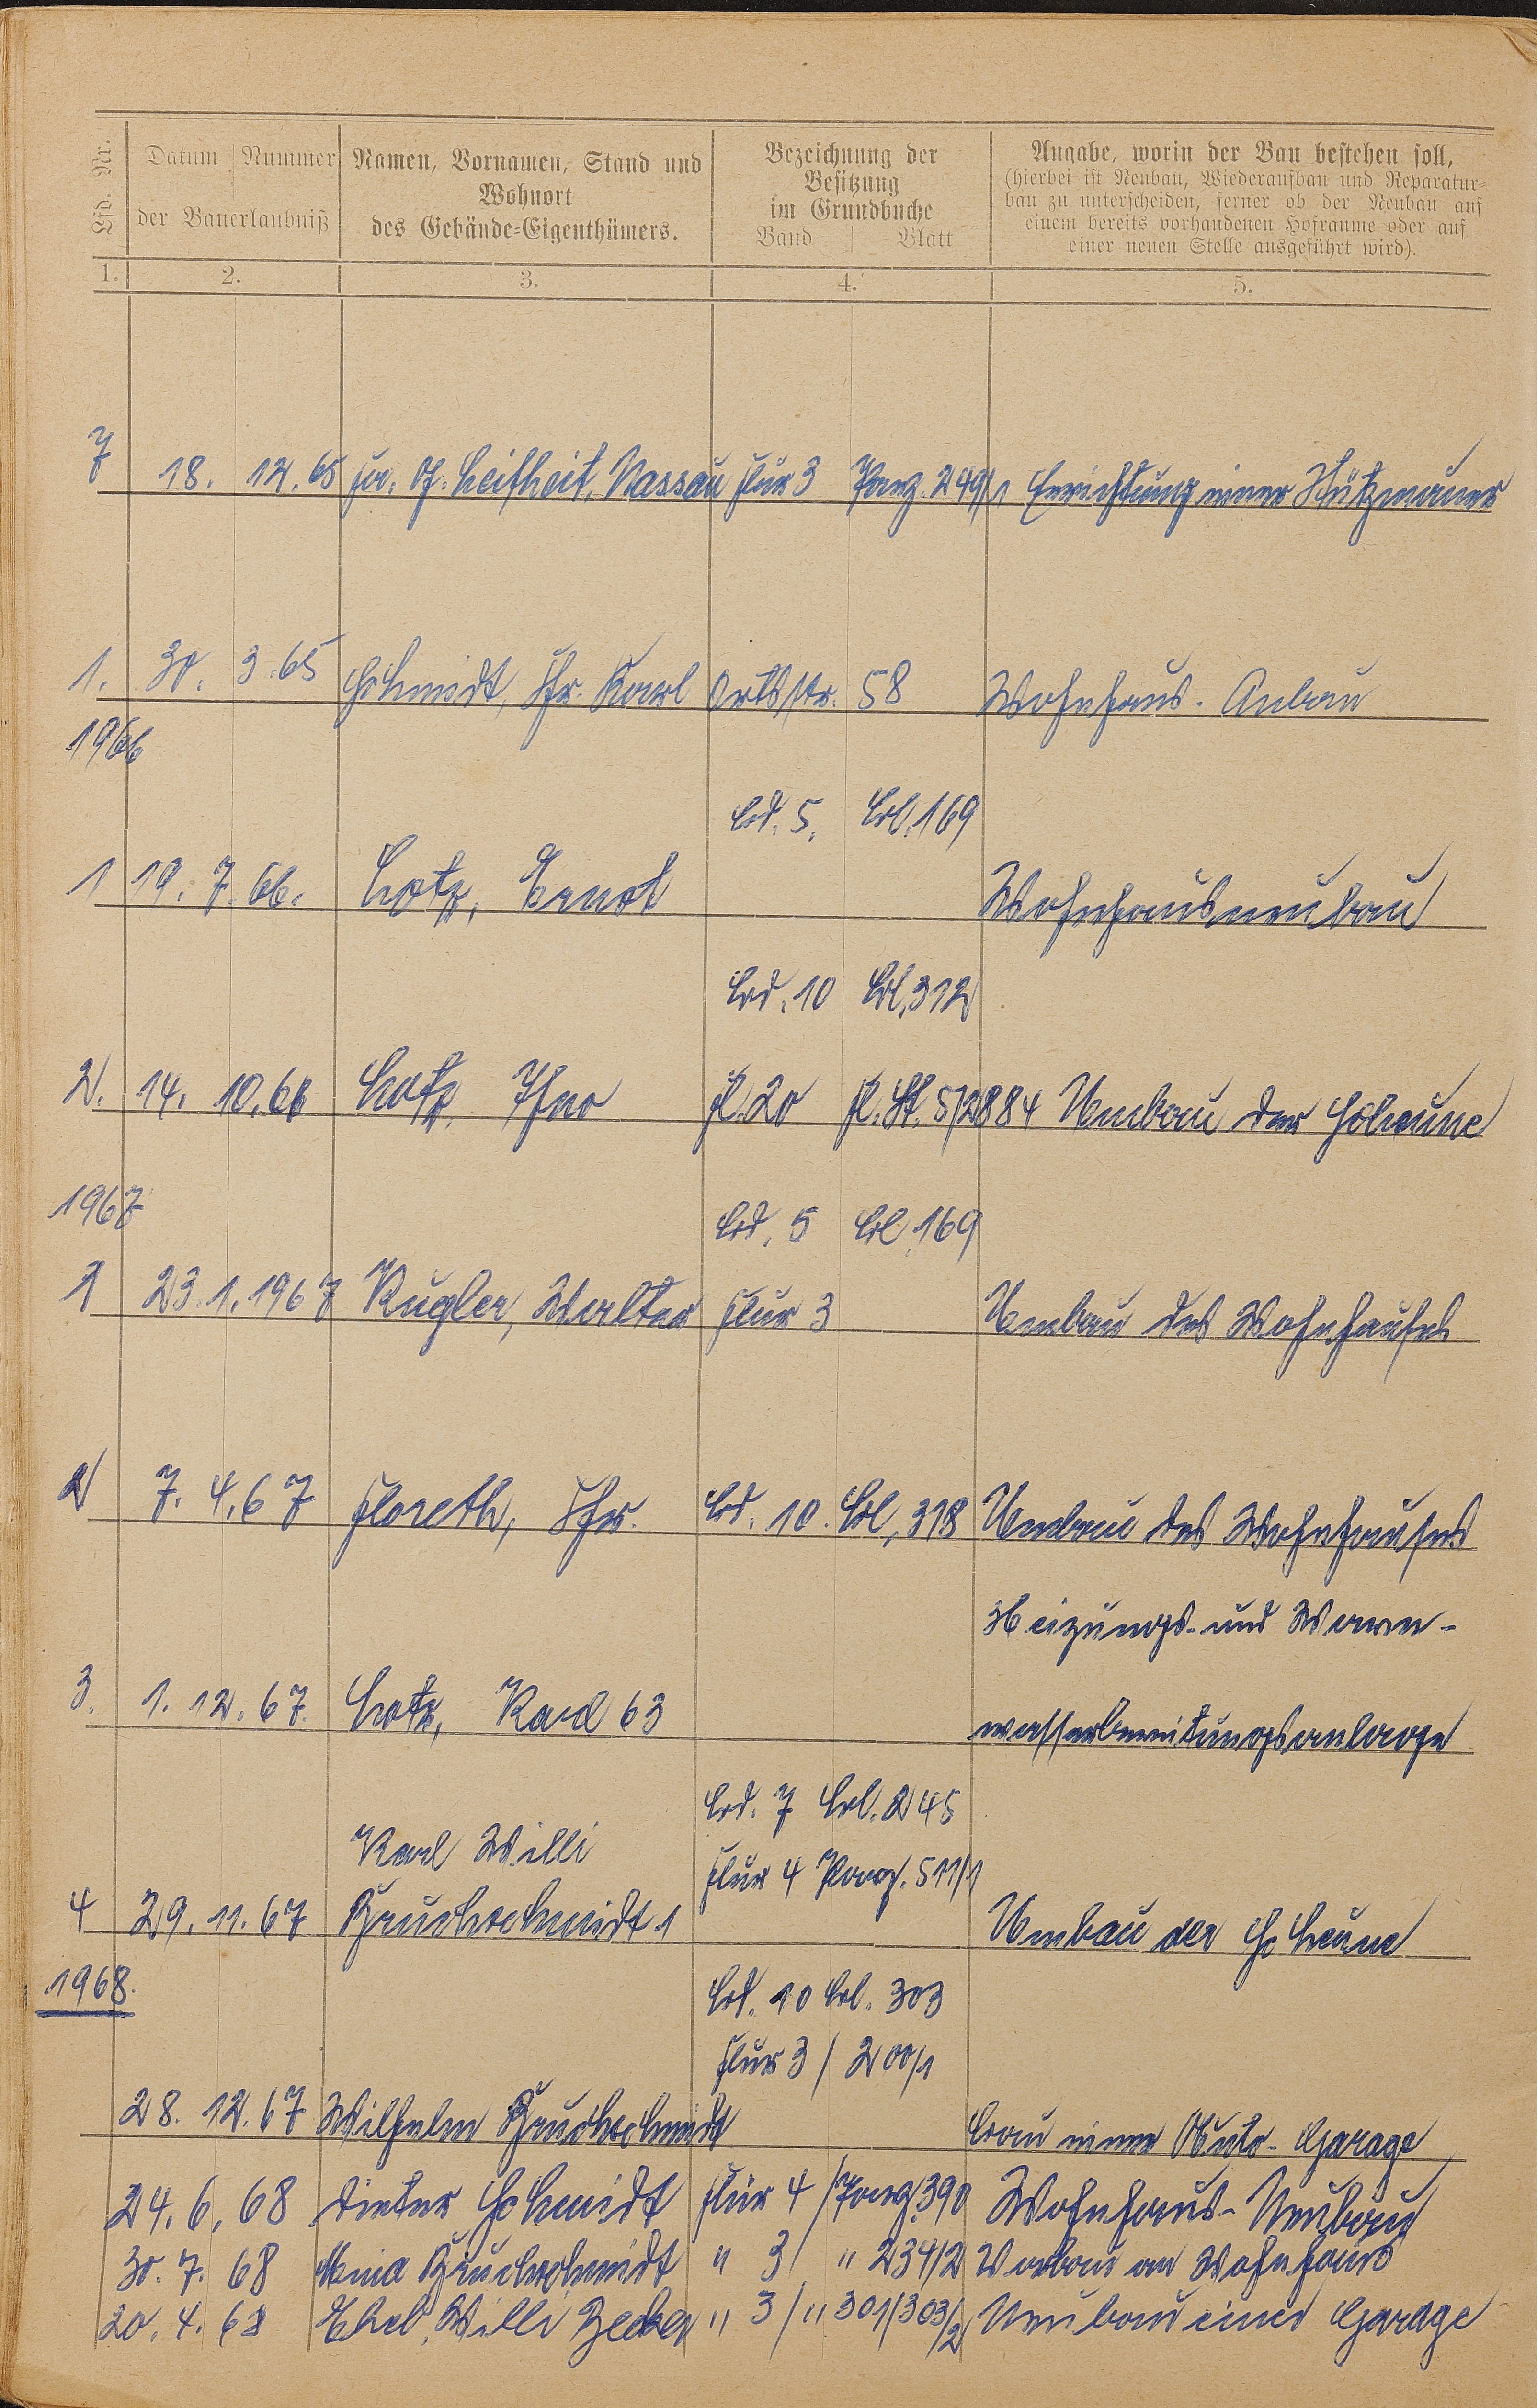 Lfd. Nr. Datum Nummer der Bauerlaubniß
Namen, Vornamen, Stand und
Wohnort
des Gebäude-Eigenthümers.
Bezeichnung der
Besitzung
im Grundbuche
Band Blatt
Angabe, worin der Bau bestehen soll,
(hierbei ist Neubau, Wiederaufbau und Reparatur-
bau zu unterscheiden, ferner ob der Neubau auf
einem bereits vorhandenen Hofraume oder auf
einer neuen Stelle ausgeführt wird).
1. 2. 3. 4. 5.
7 18. 12. 65 Fa. Leifheit, Nassau Flur 3 Parz. 249/1 Errichtung einer Stützmauer
1. 30. 3. 65 Schmidt, Karl Ortsstr. 58 Wohnhaus-Anbau
1966
Bd. 5. Bl. 169
1 19. 7. 66. Lotz, Ernst Wohnhausneubau
Bd. 10 Bl. 312
2. 14. 10. 66 Fl. 20 Fl. St. 5/2884 Umbau der Scheune
1967
Bd. 5 Bl. 169
1 23. 1. 1967 Kugler, Walter Flur 3 Umbau des Wohnhauses
2 7. 4. 67 Floreth, Bd. 10. Bl. 318 Umbau des Wohnhauses
Heizungs- und Warm-
3. 1. 12. 67. Lotz, Karl 63 wasserbereitungsanlage
Bd. 7 Bl. 245
Karl Willi Flur 4 Parz. 511/1
4 29. 11. 67 Bruchschmidt 1 Umbau der Scheune
1968.
Bd. 10 Bl. 303
Flur 3 / 200/1
28. 12. 67 Wilhelm Bruchschmidt Bau einer Auto-Garage
24. 6. 68 Dieter Schmidt Flur 4 / Parz. 390 Wohnhaus-Neubau
30. 7. 68 Mina Bruchschmidt " 3 / " 234/2 Vorbau am Wohnhaus
20. 4. 68 Ehel. Willi Becker " 3 / " 301/303/2 Neubau einer Garage